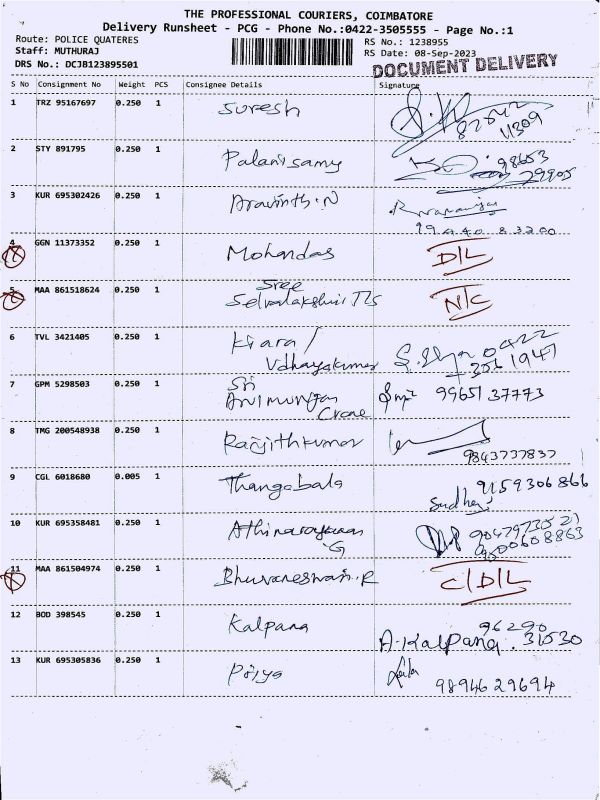 THE PROFESSIONAL COURIERS, COIMBATORE
Delivery Runsheet - PCG - Phone No.:0422-3505555 - Page No.:1
Route: POLICE QUATERES
RS No.: 1238955
Staff: MUTHURAJ
RS Date: 08-Sep-2023
DRS No.: DCJB123895501
DOCUMENT DELIVERY
S No Consignment No Weight PCS Consignee Details Signature
1 TRZ 95167697 0.250 1 Suresh
2 STY 891795 0.250 1 Palanisamy 98653
29905
3 KUR 695302426 0.250 1 Aravinth.N
4 GGN 11373352 0.250 1 Mohandas D/L
5 MAA 861518624 0.250 1 Sree
Selvalakshmi N/C
6 TVL 3421405 0.250 1 Kiara/ 0422
Udhayakumar 1947
7 GPM 5298503 0.250 1 Sri
Arulmurugan 99651 37773
Crane
8 TMG 200548938 0.250 1 Ranjithkumar
9843737837
9 CGL 6018680 0.005 1 Thangabala 9159306866
10 KUR 695358481 0.250 1 Athinarayanan
G 9500608863
11 MAA 861504974 0.250 1 Bhuvaneswari.R C/D/L
12 BOD 398545 0.250 1 Kalpana 96290
A.Kalpana. 31530
13 KUR 695305836 0.250 1 Priya
9894629694